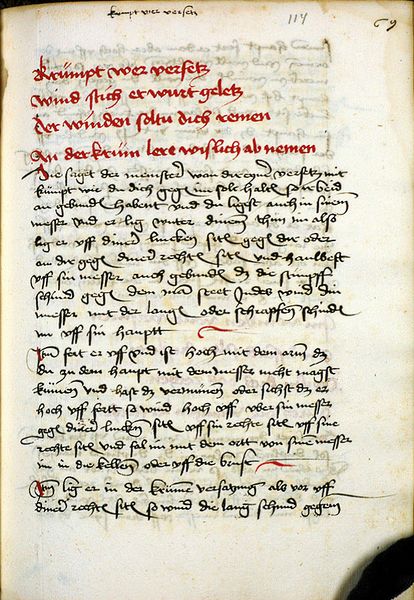 krumpt wer versetz
114
69
Krümpt wer versetz
wind stich er wurt geletz
Der winden soltu dich remen
An der krüm lere wislich ab nemen
Die saget der meinster wan du einer versetz mit
krümpt wie du dich gegē im solt haltē so ir bed
an gebundē habent und du ligst auch in sinem
messer und er lig unter dinem thun im also
lig er uff diner lincken sitē gegē dir oder
an dir gegē diner rechtē sitē und haulbest
uff sin messer auch gebundē dz die stumpff
schnid gegē dem man steet Indes wind din
messer mit der langē oder schrapfen schnidē
im uff sin haupt
Item fert er uff und ist hoch mit dem orm dz
du zu dem haupt mit dem messer nicht magst
kümen und hast dz vernumen oder sichst dz er
hoch uff fertt so wind hoch uff uber sin messer
gegē diner lincken sitē uff sin rechte sitē uff sine
rechte sitē und fal im mit dem ort von sinē messer
im in die kellen oder uff die brust
Item lig er in der krümē versatzung als vor uff
diner rechtē sitē so wind die lang schnid gegem